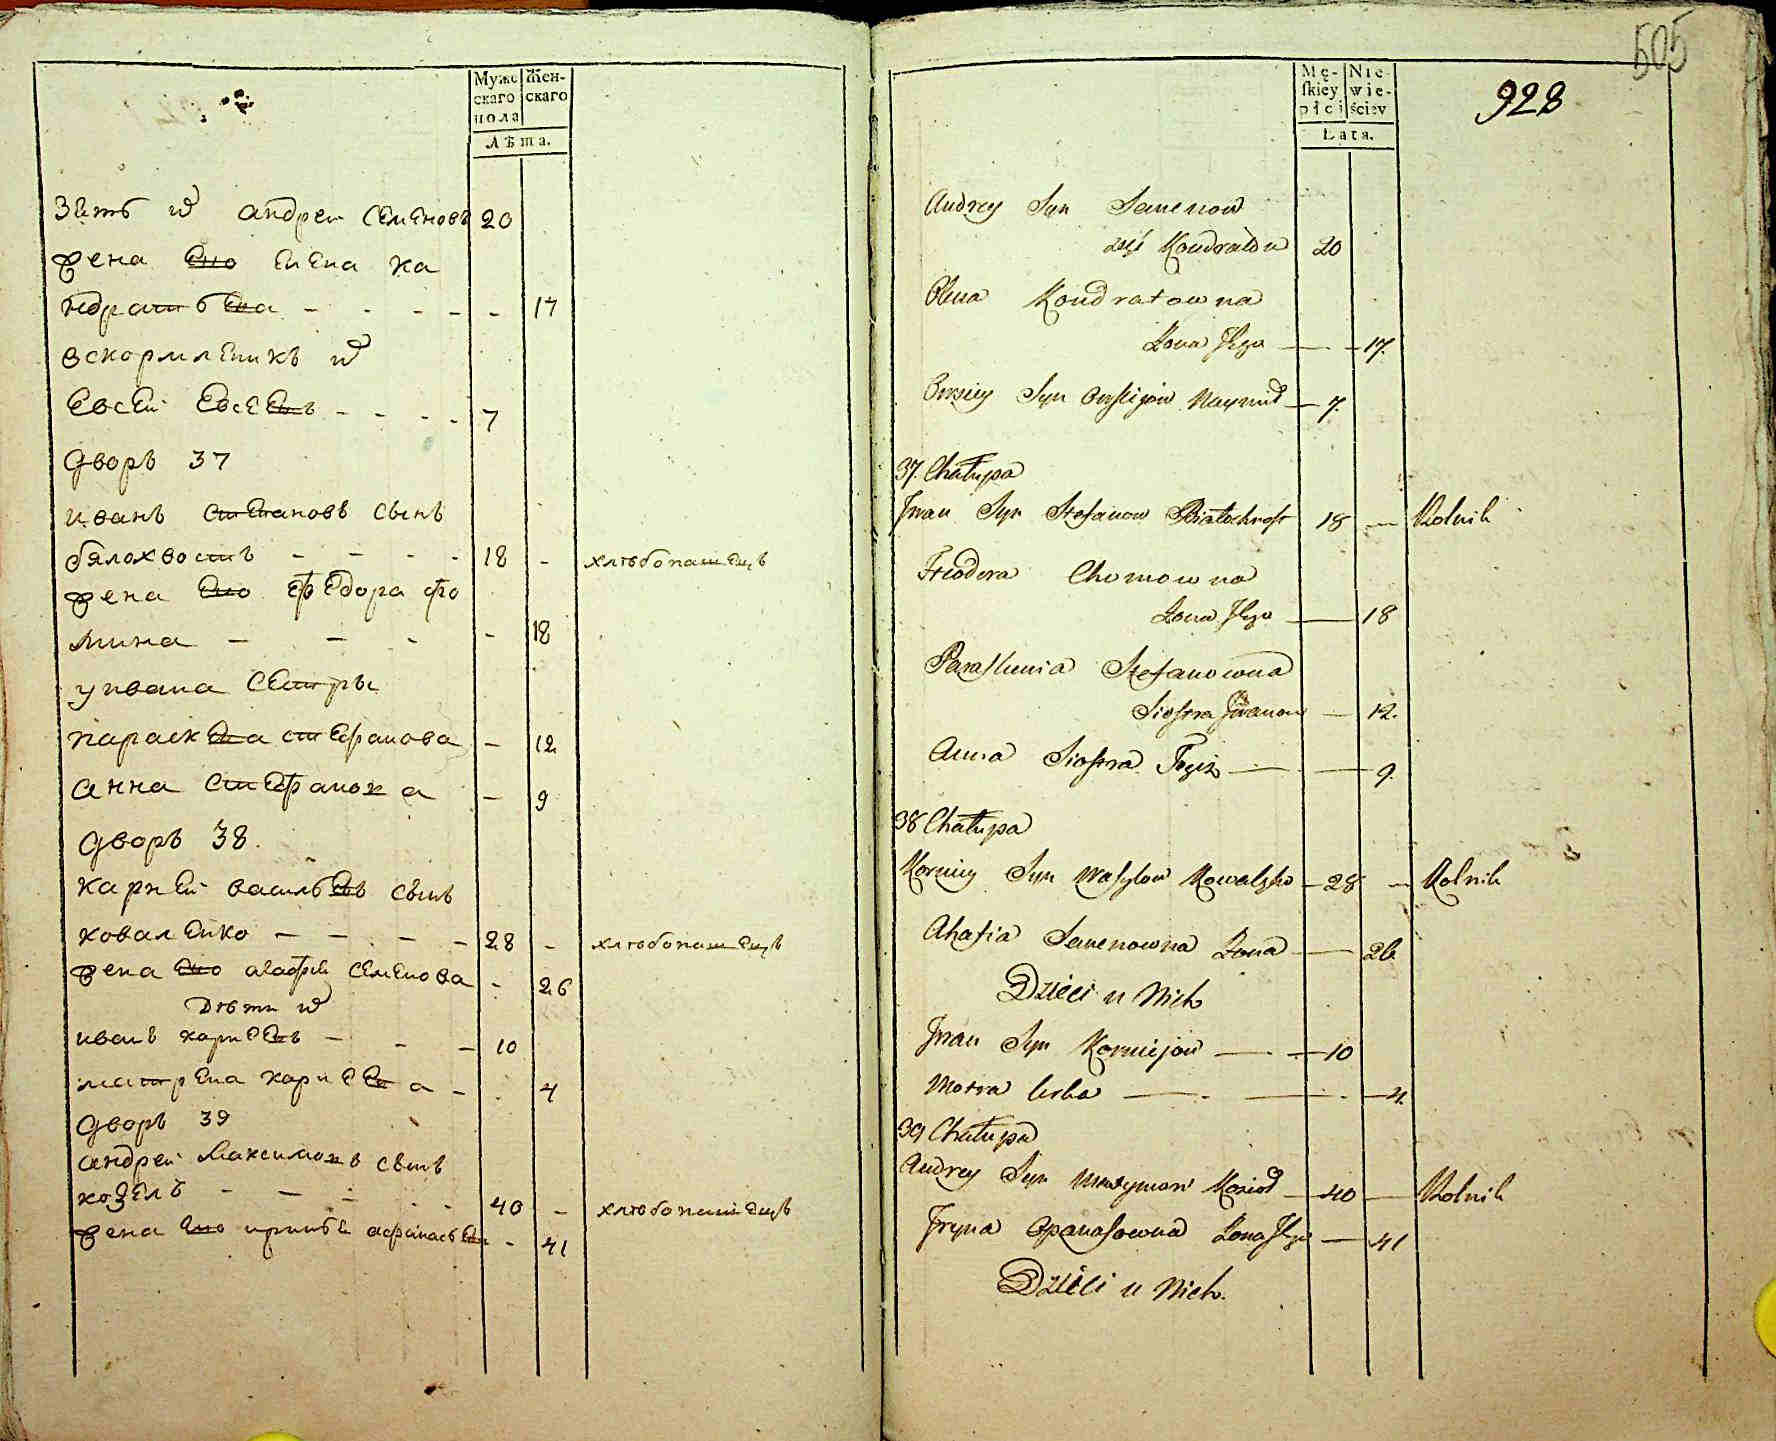 Муже
скаго
пола
Жен-
скаго
Лѣта.
Зять ихъ андреи семеновъ 20
жена его елена ка
ндратьева - - - - - 17
вскормленикъ ихъ
евсей евсеевъ - - - - 7
дворъ 37
иванъ степановъ сынъ
бялохвостъ - - - - 18 - хлѣбопашецъ
жена его федора фо
мина - - - - 18
у ивана сестры
параскева стефанова - 12
анна стефанова - 9
дворъ 38.
карней васильевъ сынъ
коваленко - - - - 28 - хлѣбопашецъ
жена его агафия семенова - 26
Дѣти ихъ
иванъ карнеевъ - - - 10
матрена карнеева - - 4
дворъ 39
андрей максимовъ сынъ
козелъ - - - - 40 - хлѣбопашецъ
жена его ирина афанасьева - 41
505
928
Mę-
skiey
płci
Nie-
wie-
ściey
Lata.
Andrey Syn Semenow
zięć Kondratow 20
Olena Kondratowna
Żona Jego — — 17.
Owsiey Syn Owsiejow — 7.
37. Chałupa
Iwan Syn Stefanow Białochwost 18 — Rolnik
Feodora Chomowna
Żona Jego — 18
Paraskewia Stefanowna
Siostra Iwanow — 12.
Anna Siostra Tegiż — — 9.
38 Chałupa
Korniey Syn Wasylow Kowalenko — 28 — Rolnik
Ahafia Semenowna Żona — 26
Dzieci u Nich
Iwan Syn Korniejow — — 10
Motra Corka — . — . — 4.
39 Chałupa
Andrey Syn Maxymow Kozioł — 40 — Rolnik
Iryna Opanasowna Żona Jego — 41
Dzieci u Nich.